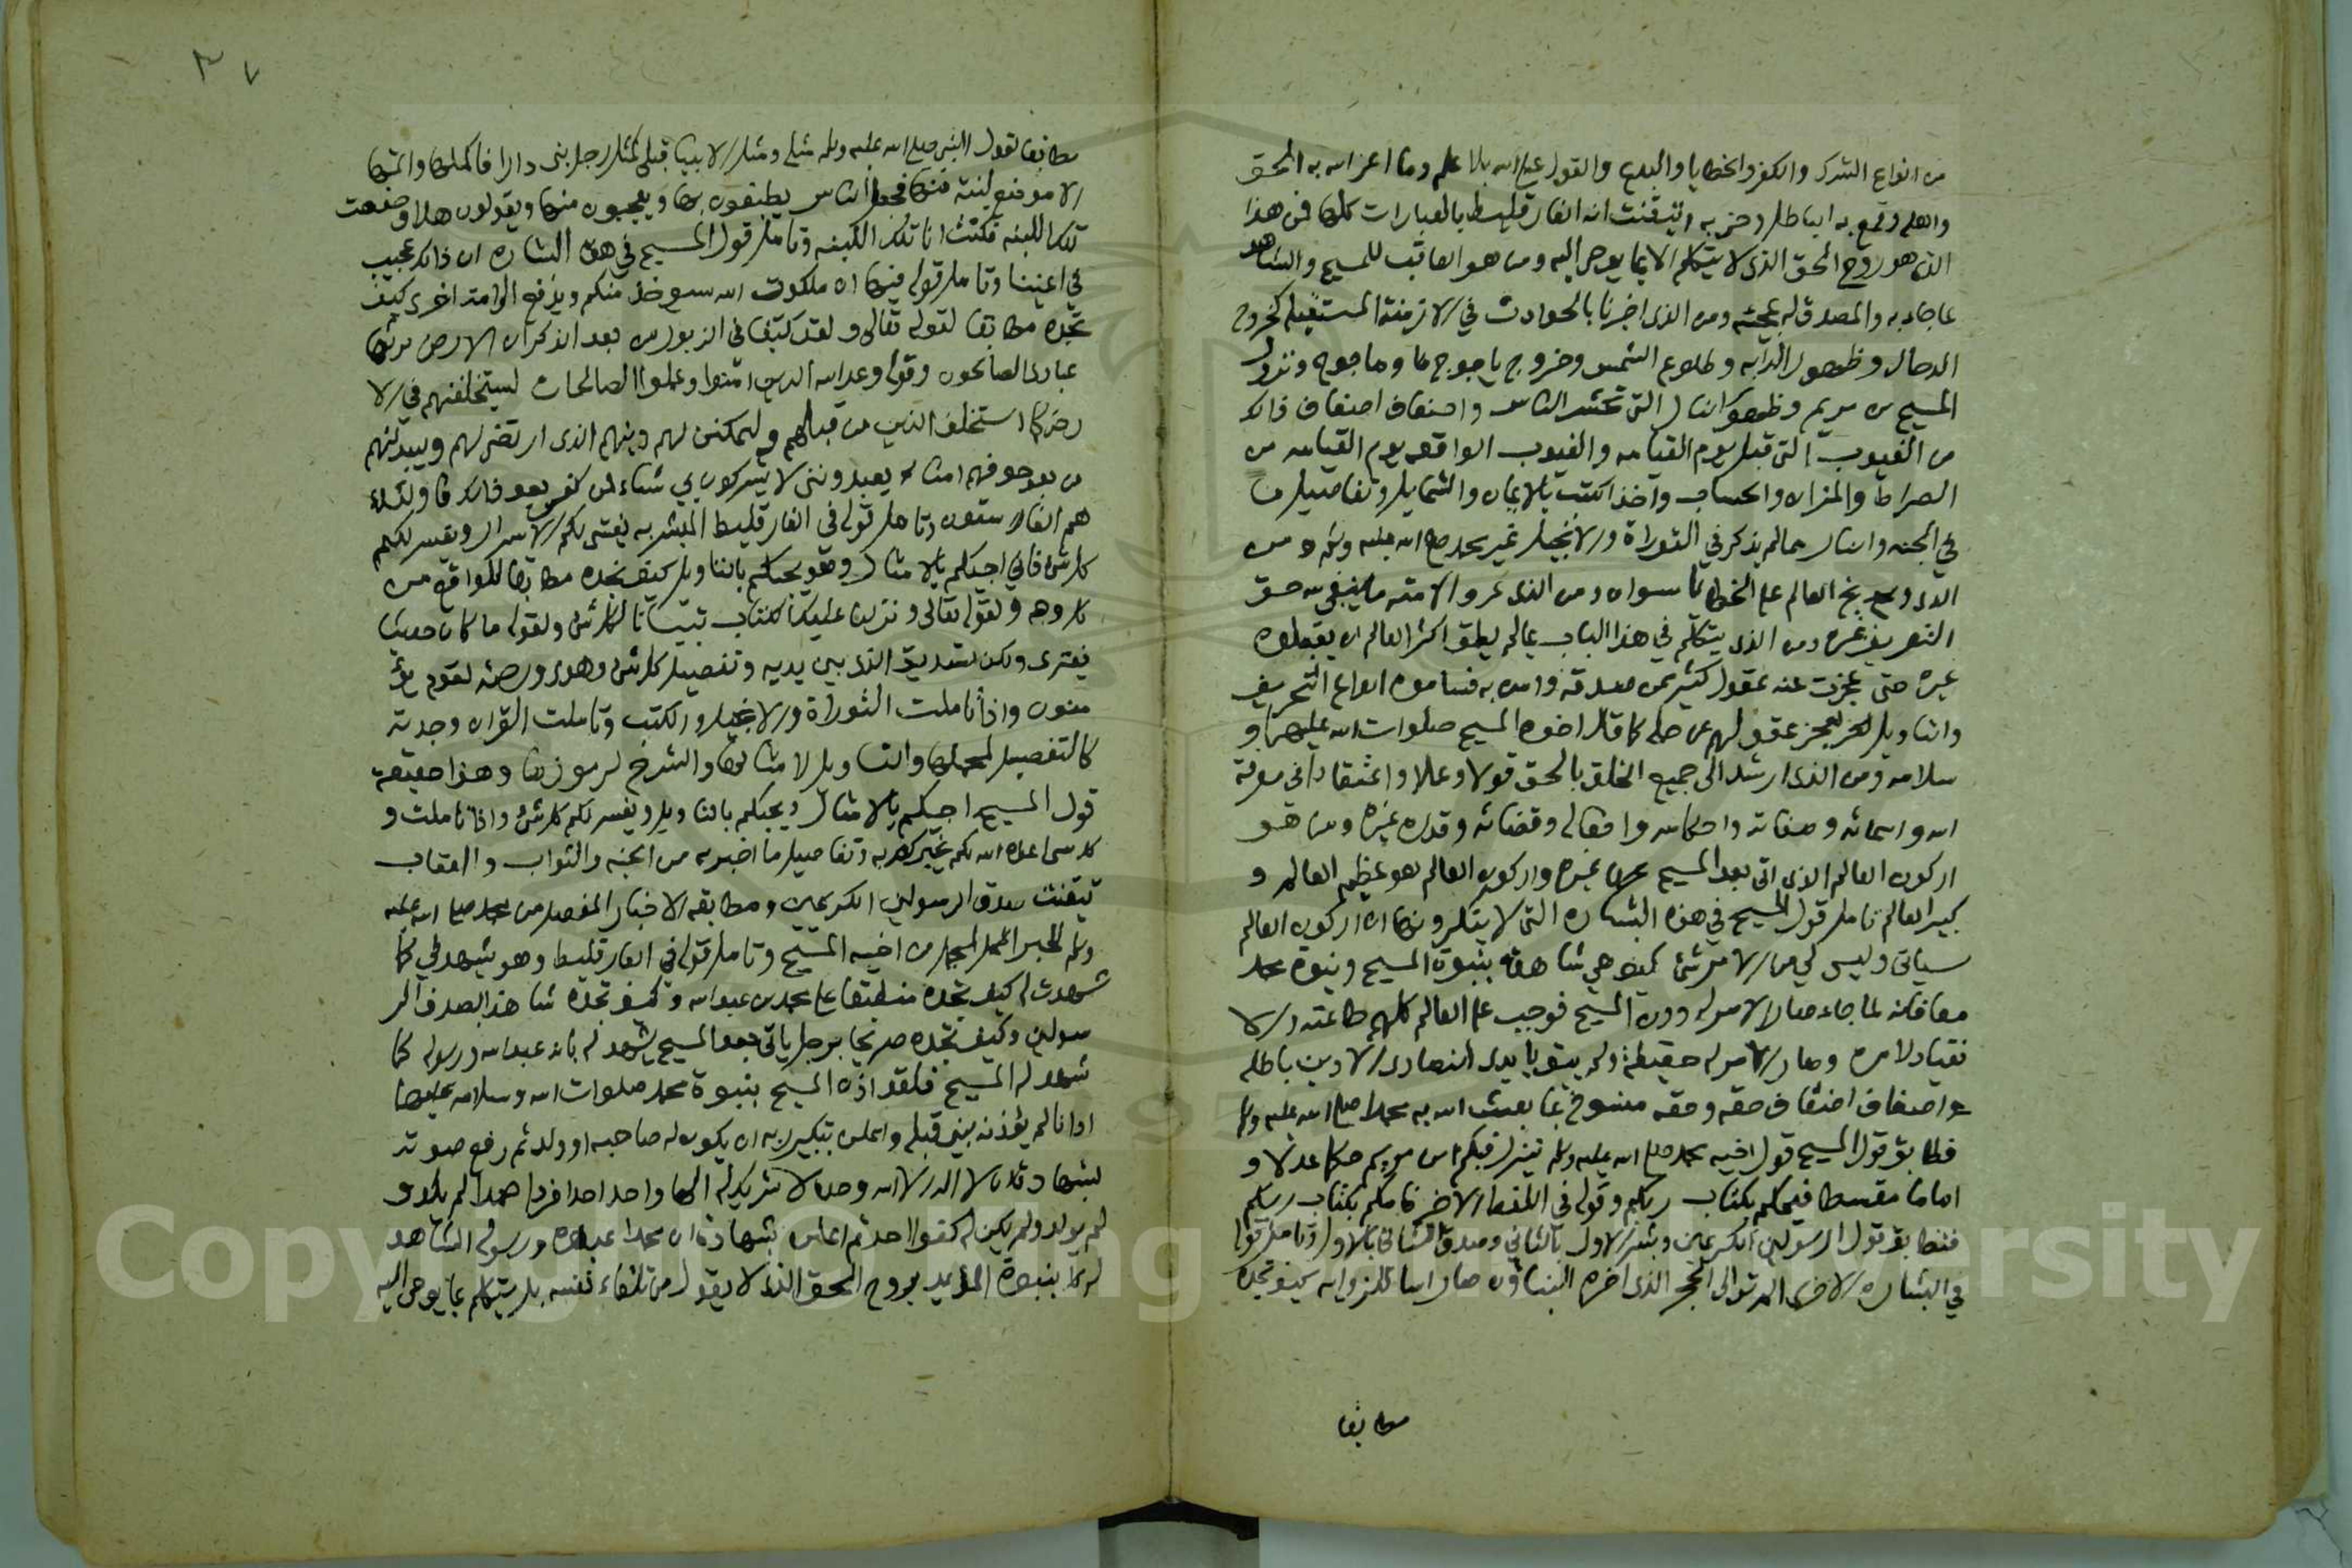 من انواع الشرك والكفر والخطايا والبدع والقول على الله بلا علم وما اعز الله به الحق
واهله وقمع به الباطل وحزبه وتيقنت انه الفارقليط بالعبارات كلها فمن هذا
الذي هو روح الحق الذي لا يتكلم الا بما يوحى اليه ومن هو العاقب للمسيح والشاهد
لما جاء به والمصدق له بمجيئه ومن الذي اخبرنا بالحوادث في الازمنة المستقبله كخروج
الدجال وظهور الدابه وطلوع الشمس وخروج ياجوج وماجوج ونزول
المسيح بن مريم وظهور النار التي تحشر الناس واضعاف اضعاف ذلك
من الغيوب التي قبل يوم القيامه والغيوب الواقعه يوم القيامه من
الصراط والميزان والحساب واخذ الكتب بالايمان والشمايل وتفاصيل ما
في الجنه والنار مما لم يذكر في التوراة والانجيل غير محمد صلى الله عليه وسلم ومن
الذي وبخ العالم على الخطايا سواه ومن الذي عرف الامة ما ينبغي لله حق
التعريف غيره ومن الذي يتكلم في هذا الباب بما لم يطق اكثر العالم ان يقبلوه
غيره حتى عجزت عنه عقول كثير ممن صدقه وامن به فساموه انواع التحريف
والتاويل لعجز عقولهم عن حمله كما قال اخوه المسيح صلوات الله عليهما و
سلامه ومن الذي ارشد الى جميع الخلق بالحق قولا وعملا واعتقادا في معرفة
الله واسمائه وصفاته واحكامه وافعاله وقضائه وقدره غيره ومن هو
اركون العالم الذي اتى بعد المسيح غيره واركون العالم هو عظيم العالم و
كبير العالم تامل قول المسيح في هذه البشاره التي لا ينكرونها ان اركون العالم
سياتي وليس لي من الامر شئ كيف هي شاهدة بنبوة المسيح ونبوة محمد
معا فانه لما جاء صار الامر له دون المسيح فوجب على العالم كلهم طاعته والا
نقياد لامره وصار الامر له حقيقة ولم يبق بايدي النصارى الا دين باطله
اضعاف اضعاف حقه وحقه منسوخ بما بعث الله به محمدا صلى الله عليه وسلم
فطابق قول المسيح قول اخيه محمد صلى الله عليه وسلم ينزل فيكم ابن مريم حكما عدلا و
اماما مقسطا فيحكم بكتاب ربكم وقوله في اللفظ الاخر فامكم بكتاب ربكم
فتطابق قول الرسولين الكريمين وبشر الاول بالثاني وصدق الثاني بالاول وتامل قوله
في البشاره الاخرى الم تر الى الحجر الذي اخره البناؤن صار اسا للزاويه كيف تجده
مطابقا
٣٧
مطابقا لقول النبي صلى الله عليه وسلم مثلي ومثل الانبيا قبلي كمثل رجل بنى دارا فاكملها واتمها
الا موضع لبنة منها فجعل الناس يطيفون بها ويعجبون منها ويقولون هلا وضعت
تلك اللبنه فكنت انا تلك اللبنه وتامل قول المسيح في هذه البشاره ان ذلك عجيب
في اعيننا وتامل قوله فيها ان ملكوت الله سيؤخذ منكم ويدفع الى امة اخرى كيف
تجده مطابقا لقوله تعالى ولقد كتبنا في الزبور من بعد الذكر ان الارض يرثها
عبادي الصالحون وقوله وعد الله الذين امنوا وعملوا الصالحات ليستخلفنهم في الا
رض كما استخلف الذين من قبلهم وليمكنن لهم دينهم الذي ارتضى لهم وليبدلنهم
من بعد خوفهم امنا يعبدونني لا يشركون بي شياء ومن كفر بعد ذلك فاولئك
هم الفاسقون وتامل قوله في الفارقليط المبشر به يفشي لكم الاسرار ويفسر لكم
كل شئ فاني اجيكم بالامثال وهو يجيكم بالتاويل كيف تجده مطابقا للواقع من
كل وجه ولقوله تعالى ونزلنا عليك الكتاب تبيانا لكل شئ ولقوله ما كان حديثا
يفترى ولكن تصديق الذي بين يديه وتفصيل كل شئ وهدى ورحمة لقوم يؤ
منون واذا تاملت التوراة والانجيل والكتب وتاملت القران وجدته
كالتفصيل لجملها والتاويل لامثالها والشرح لرموزها وهذا حقيقة
قول المسيح اجيكم بالامثال ويجيكم بالتاويل ويفسر لكم كل شئ واذا تاملت
وتفاصيل ما اخبر به من الجنه والثواب والعقاب
تيقنت صدق الرسولين الكريمين ومطابقة الاخبار المفصله من محمد صلى الله عليه
وسلم للخبر المجمل من اخيه المسيح وتامل قوله في الفارقليط وهو يشهد لي كما
شهدت له كيف تجده منطبقا على محمد بن عبد الله وكيف تجده شاهدا بصدق الر
سولين وكيف تجده صريحا برجل ياتي بعد المسيح يشهد له بانه عبد الله ورسوله كما
شهد له المسيح فلقد اذن المسيح بنبوة محمد صلوات الله وسلامه عليهما
اذانا لم يؤذنه نبي قبله واعلن بتكبير ربه ان يكون له صاحبه او ولد ثم رفع صوته
بشهادة ان لا اله الا الله وحده لا شريك له الها واحدا احدا فردا صمدا لم يلد و
لم يولد ولم يكن له كفوا احد ثم اعلن بشهادة ان محمدا عبده ورسوله الشاهد
له بنبوة المؤيد بروح الحق الذي لا يقول من تلقاء نفسه بل يتكلم بما يوحى اليه